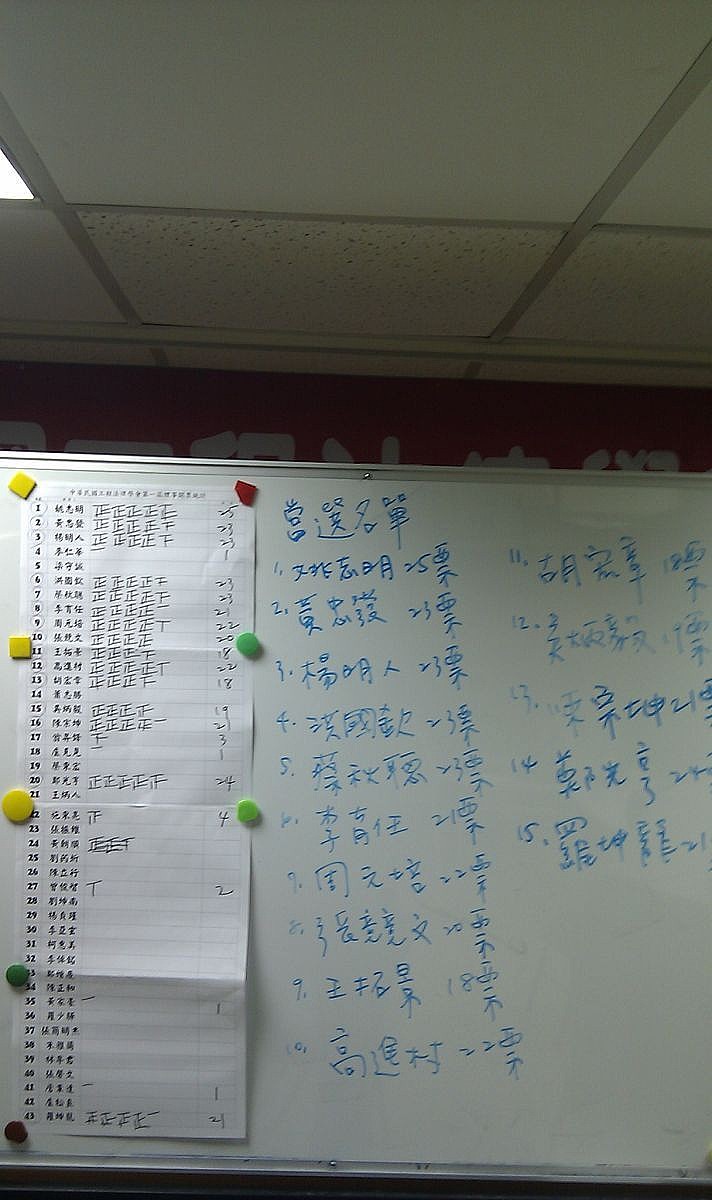 中華民國工程法律學會第一屆理事開票統計
1 姚志明 正正正正正 25
2 黃忠發 正正正正下 23
3 楊明人 正正正正下 23
4 李仁華 一 1
5 梁守誠
6 洪國欽 正正正正下 23
7 蔡秋聰 正正正正下 23
8 李育任 正正正正一 21
9 周元培 正正正正丅 22
10 張競文 正正正正 20
11 王拓景 正正正下 18
12 高進村 正正正正丅 22
13 胡宏章 正正正下 18
14 蕭志勝
15 吳炳毅 19
16 陳宗坤 正正正正一 21
17 下 3
18 一 1
19 蔡東宏
20 鄭光亨 24
21 王炳人
22 4
23 張振維
24 黃朝順
25
26 陳立行
27 曾俊智 丅 2
28 劉坤南
29 楊貞瑾
30 李亞玄
31 柯惠真
32
33
34 陳正和
35 一 1
36
37
38
39
40 張馨文
41 一 1
42
43 羅坤龍 正正正正一 21
當選名單
1. 姚志明 25票
2. 黃忠發 23票
3. 楊明人 23票
4. 洪國欽 23票
5. 蔡秋聰 23票
6. 李育任 21票
7. 周元培 22票
8. 張競文 20票
9. 王拓景 18票
10. 高進村 22票
11. 胡宏章 18票
12. 吳炳毅 19票
13. 陳宗坤 21票
14. 鄭光亨 24
15. 羅坤龍 21